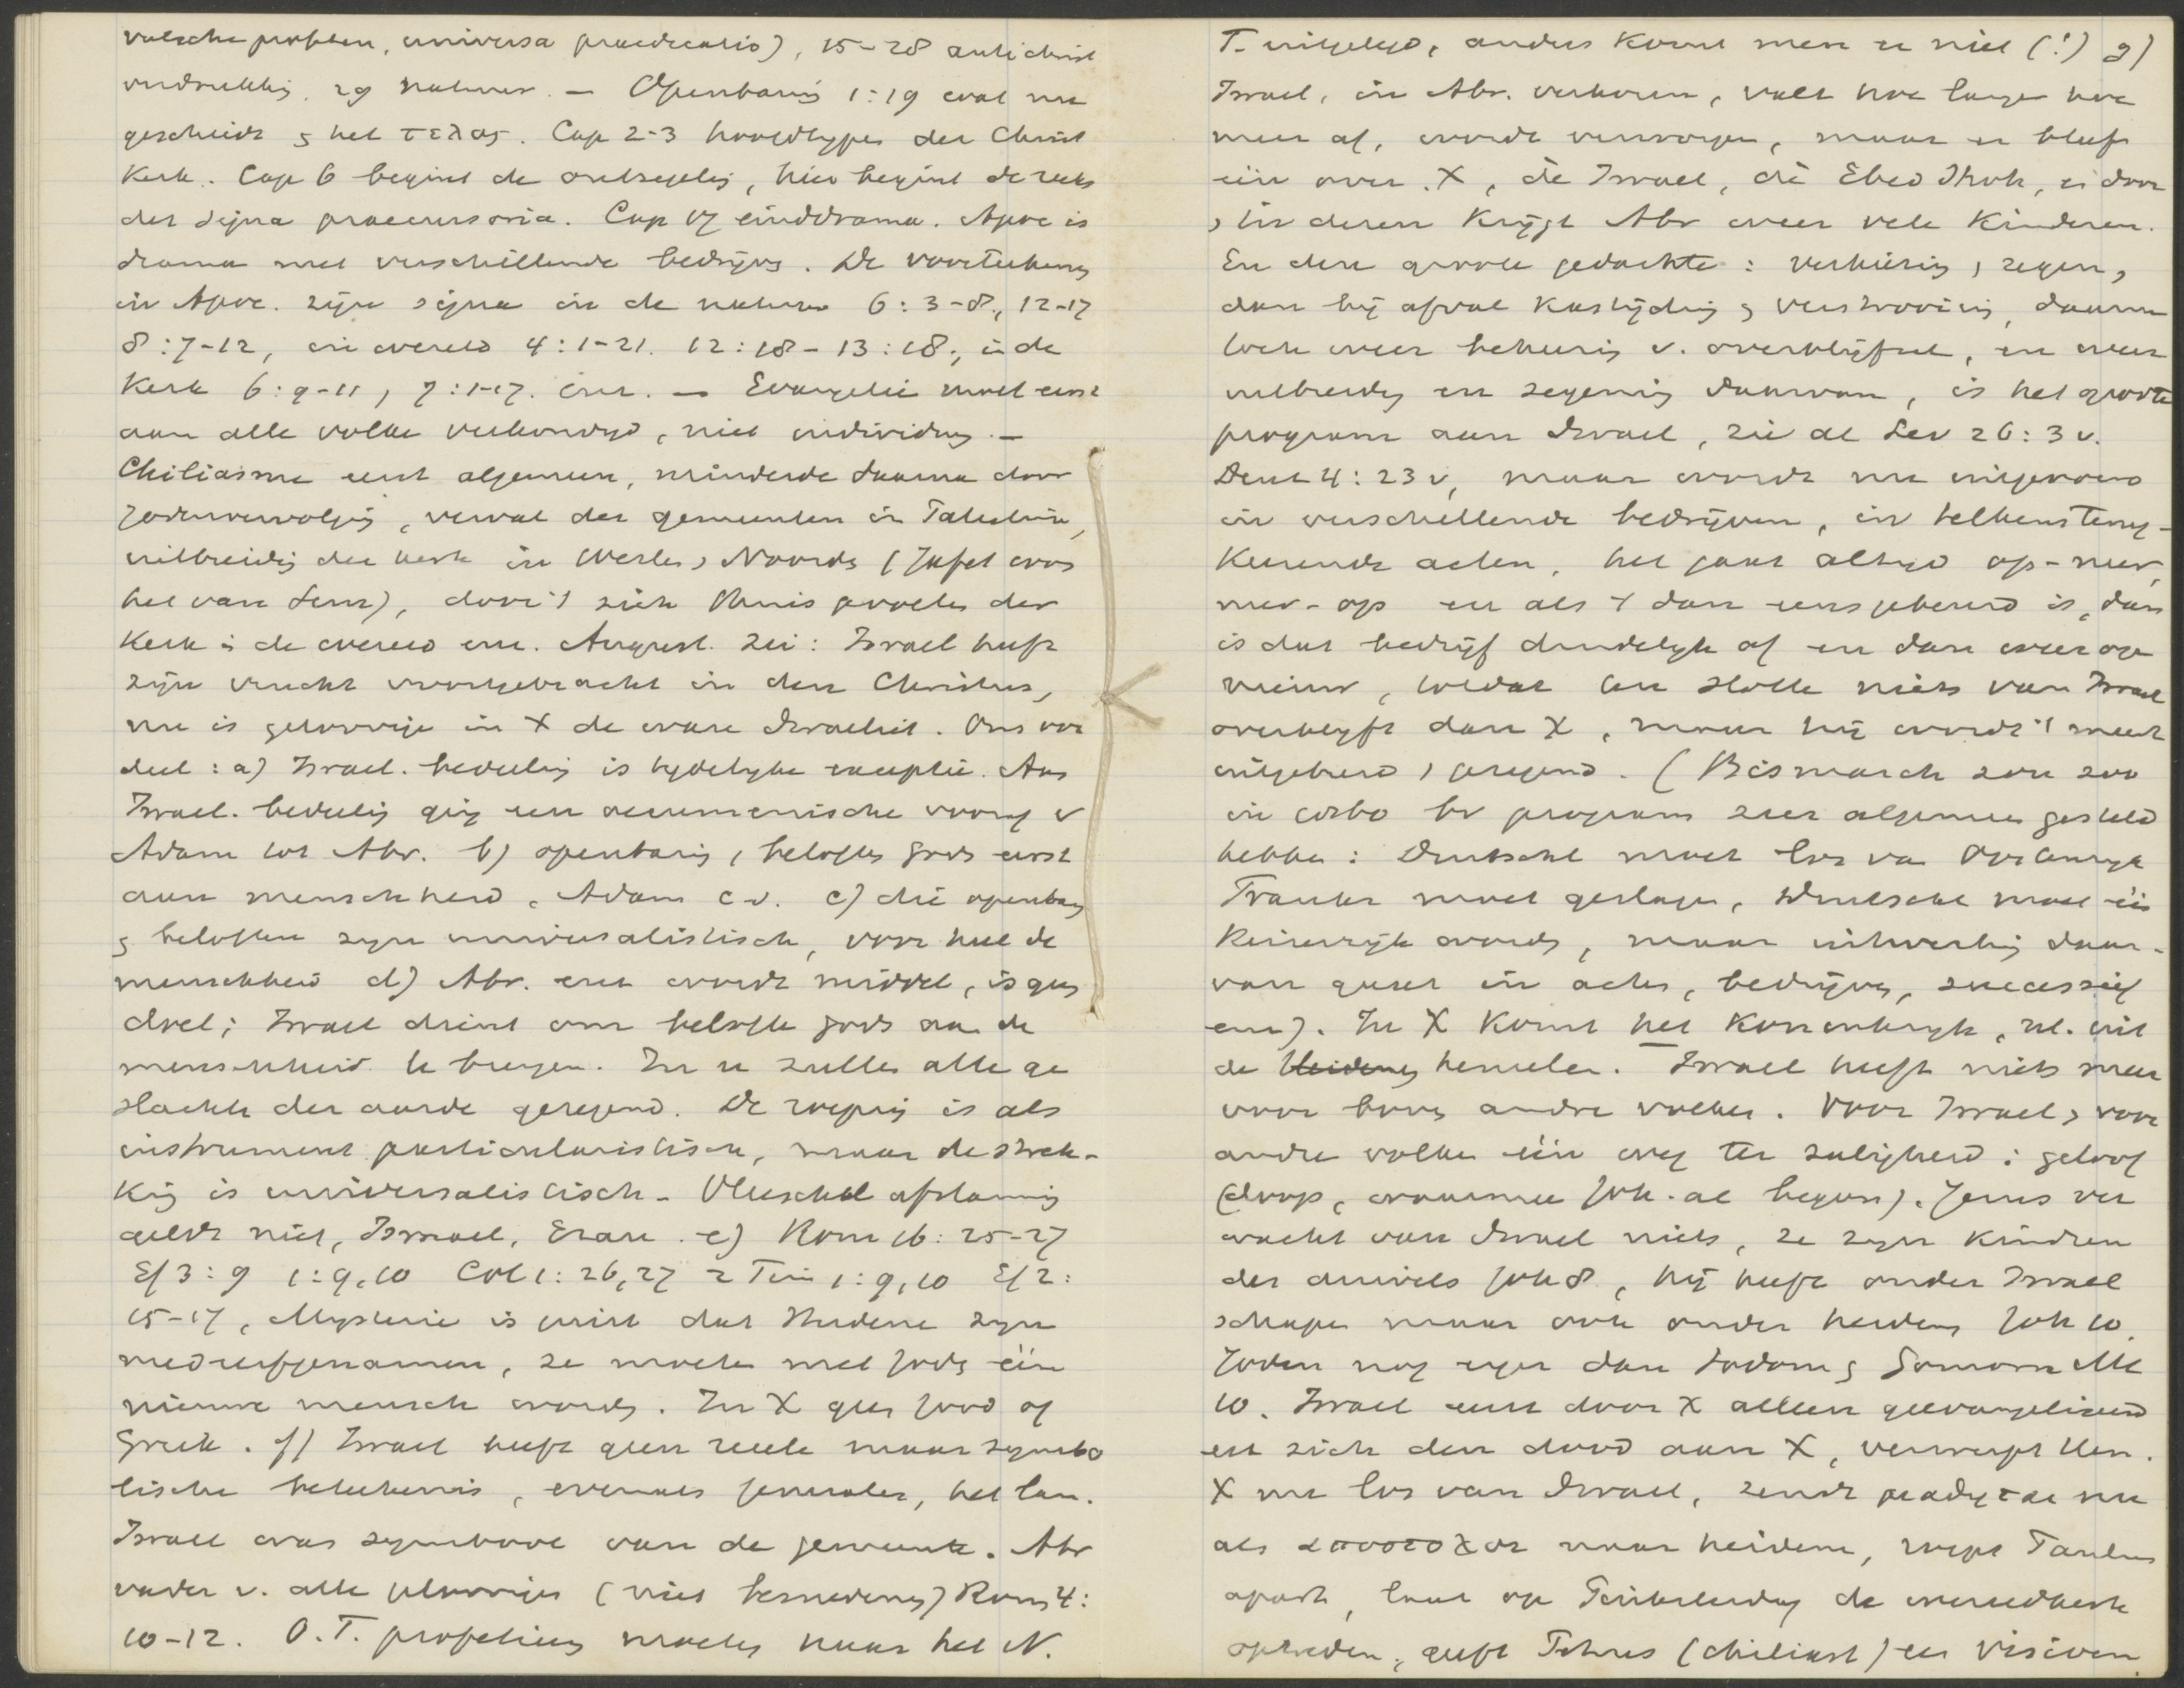 valsche profeten, universa praedicatio), 15-28 antichrist
verdrukking. 29 natuur. — Openbaring 1:19 wat nu
geschiedt & het τελος. Cap 2-3 hoofdtypen der Christ
Kerk. Cap 6 begint de ontzegeling, hier begint de reeks
der signa praecursoria. Cap 17 einddrama. Apoc is
drama met verschillende bedrijven. De voorteekenen
in Apoc. zijn signa in de natuur 6:3-8, 12-17
8:7-12, in wereld 4:1-21. 12:18-13:18, in de
Kerk 6:9-11, 7:1-17. enz. — Evangelie moet eerst
aan alle volken verkondigd, niet individuen. —
Chiliasme eerst algemeen, minderde daarna door
Jodenvervolging, verval der gemeenten in Palestina,
uitbreiding der kerk in Westen, Noorden (Jafet woont
het van Sem), dovi't zich thuis voelen der
Kerk in de wereld enz. August. zei: Israel heeft
zijn vrucht voortgebracht in den Christus,
nu is geloovige in X de ware Israeliet. Ons oor
deel: a) Israel. bedeeling is tijdelijke exceptie. Aan
Israel. bedeeling ging een oecumenische vooraf v
Adam tot Abr. b) openbaring, beloften Gods eerst
aan menschheid, Adam c.v. c) die openbaring
& beloften zijn universalistisch, voor heel de
menschheid d) Abr. enz wordt middel, is geen
doel; Israel dient om belofte Gods aan de
menschheid te brengen. In u zullen alle ge
slachten der aarde gezegend. De roeping is als
instrument particularistisch, maar de strek-
king is universalistisch. Vleeschel afstamming
geldt niet, Ismael, Ezau. e) Rom 16:25-27
Ef 3:9 1:9,10 Col 1:26,27 2 Tim 1:9,10 Ef 2:
15-17, Mysterie is juist dat Heidenen zijn
medeerfgenamen, ze moeten met Joden één
nieuwe mensch worden. In X geen Jood of
Griek. f) Israel heeft geen reeele maar symbo
lische beteekenis, evenals Jeruzalem, het land.
Israel was symbool van de gemeente. Abr
vader v. alle geloovigen (niet besnedenen) Rom 4:
10-12. O.T. profetieen moeten naar het N.
T. uitgelegd, anders komt men er niet (!) g)
Israel, in Abr. verkoren, valt hoe langer hoe
meer af, wordt verworpen, maar er blijft
één over. X, dè Israel, dè Ebed Jhvh, en door
& in dezen krijgt Abr weer vele kinderen.
En deze groote gedachte: verkiezing, zegen,
dan bij afval kastijding & verstrooiing, daarna
toch weer bekeering v. overblijfsel, en weer
uitbreiding en zegening daarvan, is het groote
program aan Israel, zie al Lev 26:3 v.
Deut 4:23 v, maar wordt nu uitgevoerd
in verschillende bedrijven, in telkens terug-
keerende acten, het gaat altijd op-neer,
neer-op en als 't dan eens gebeurd is, dan
is dat bedrijf duidelijk af en dan weer op
nieuw, totdat ten slotte niets van Israel
overblijft dan X, maar hij wordt 't meest
uitgebreid, gezegend. (Bismarck zou zoo
in 1860 bv program zeer algemeen gesteld
hebben: Duitschl moet los van Oostenrijk
Frankr moet geslagen, Duitschl moet één
Keizerrijk worden, maar uitwerking daar-
van gaat in actes, bedrijven, successief
enz). In X komt het Koninkrijk, nl. uit
de hemelen. Israel heeft niets meer
voor boven andre volken. Voor Israel & voor
andre volken één weg ter zaligheid: geloof
(doop, waarmee Joh. al begon). Jezus ver
wacht van Israel niets, ze zijn kindren
des duivels Joh 8, hij heeft onder Israel
schapen maar ook onder heidenen Joh 10.
Joden nog erger dan Sodom & Gomorra Mt
10. Israel eerst door X alleen geevangeliseerd
en zich den dood aan X, verwerpt Hem.
X nu los van Israel, zendt
als naar heidenen, roept Paulus
apart, laat op Pinksterdag de wereldkerk
optreden, geeft Petrus (chiliast) een visioen